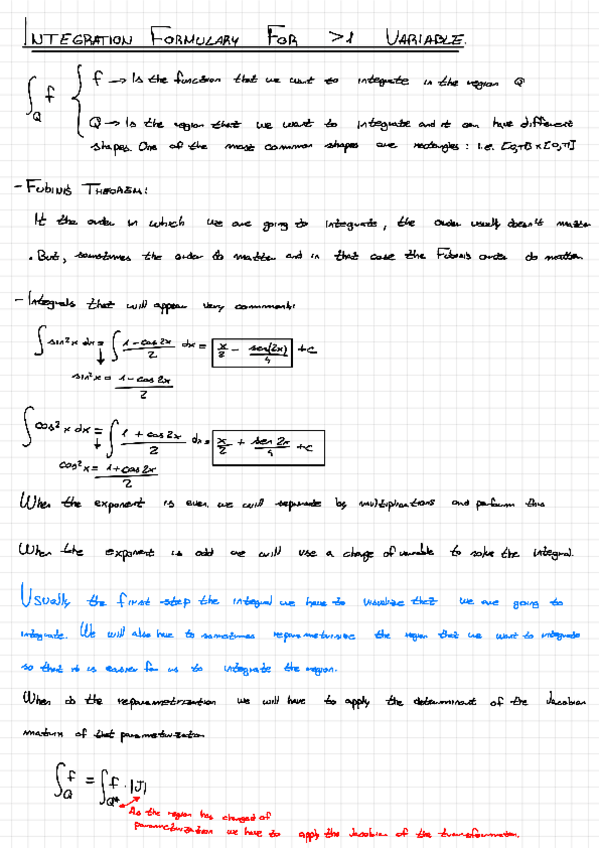 INTEGRATION FORMULARY FOR >1 VARIABLE.
∫_Q f { f → Is the function that we want to integrate in the region Q
Q → Is the region that we want to integrate and it can have different
shapes. One of the most common shapes are rectangles: i.e. [0,π]×[0,π]
- FUBINIS THEOREM:
It the order in which we are going to integrate, the order usually doesn't matter
. But, sometimes the order to matter and in that case the Fubinis order do matter.
- Integrals that will appear very commonly:
∫ sin²x dx = ∫ (1-cos2x)/2 dx = x/2 - sen(2x)/4 +c
sin²x = (1-cos2x)/2
∫ cos²x dx = ∫ (1+cos2x)/2 dx = x/2 + sen2x/4 +c
cos²x = (1+cos2x)/2
When the exponent is even we will separate by multiplications and perform this
When the exponent is odd we will use a change of variable to solve the integral.
Usually the first step the integral we have to visualize that we are going to
integrate. We will also have to sometimes the region that we want to integrate
so that it is easier for us to integrate the region.
When do the reparametrization we will have to apply the determinant of the Jacobian
matrix of that
∫_Q f = ∫_Q* f · |J|
As the region has changed of
parametrization we have to apply the Jacobian of the transformation.